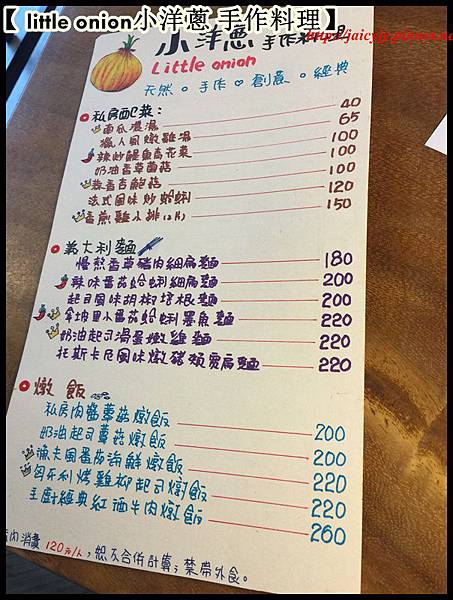 【 little onion小洋蔥 手作料理】
小洋蔥 手作料理
Little onion
天然。手作♡創意。經典
私房配菜：
南瓜濃湯 40
獵人風燉雞湯 65
辣炒鯷魚高花菜 100
奶油香草菌菇 100
蒜香杏鮑菇 100
法式風味炒蛤蜊 120
香煎雞小排(2片) 150
義大利麵
慢熬香草豬肉細扁麵 180
辣味番茄蛤蜊細扁麵 200
起司風味胡椒培根麵 200
拿坡里小番茄蛤蜊墨魚麵 220
奶油起司滑蛋嫩雞麵 220
托斯卡尼風味燉豬頰寬扁麵 220
燉飯
私房肉醬蕈菇燉飯 200
奶油起司蕈菇燉飯 200
漁夫風番茄海鮮燉飯 220
匈牙利烤雞柳起司燉飯 220
主廚經典紅酒牛肉燉飯 260
內消費 120元/人，恕不合併計費；禁帶外食。